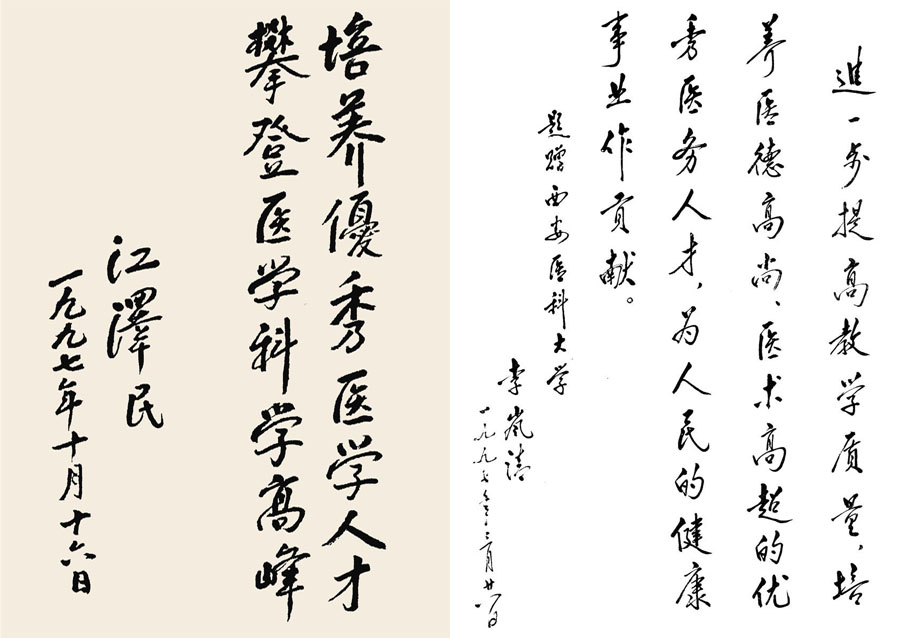 培养優秀医学人才
攀登医学科学高峰
江澤民
一九九七年十月十六日
進一步提高教学质量，培
养医德高尚、医术高超的优
秀医务人才，为人民的健康
事业作贡献。
题赠西安医科大学
李岚清
一九九七年三月廿八日